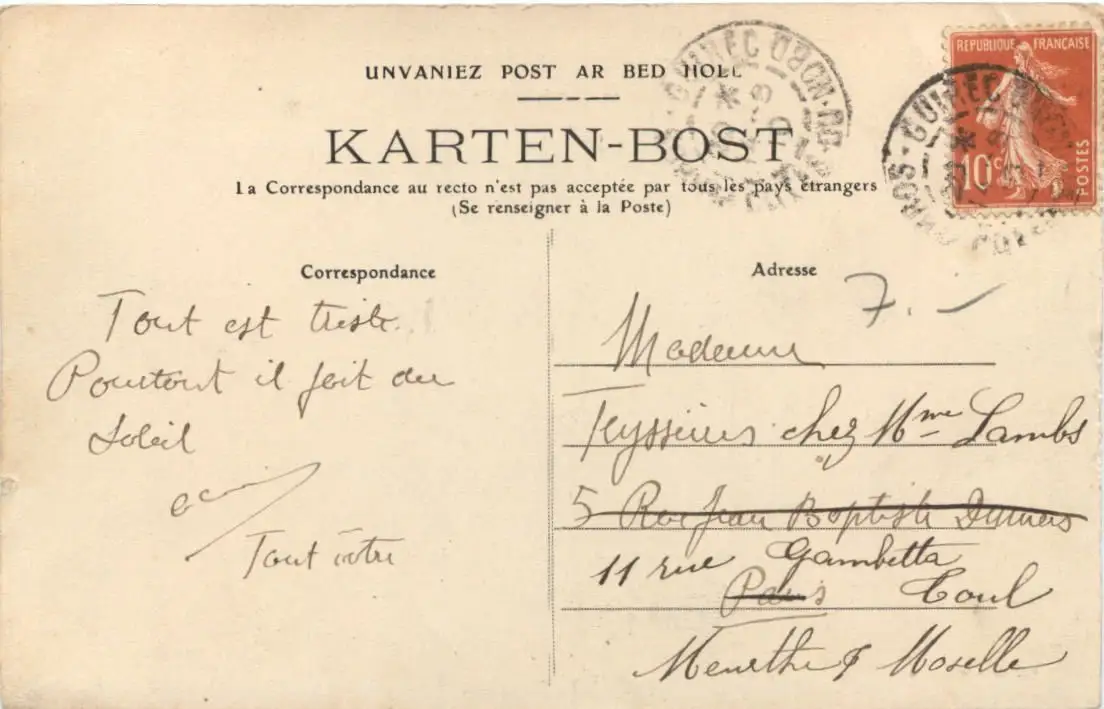 UNVANIEZ POST AR BED HOLL
KARTEN-BOST
La Correspondance au recto n'est pas acceptée par tous les pays étrangers
(Se renseigner à la Poste)
REPUBLIQUE FRANÇAISE
10c
POSTES
GUIREC
GUIREC
Correspondance
Tout est triste.
Pourtant il fait du
Soleil
Tout vôtre
Adresse
7. -
Madame
chez Mme Lambs
5 Rue Jean Baptiste Dumas
11 rue Gambetta
Paris Toul
Meurthe & Moselle